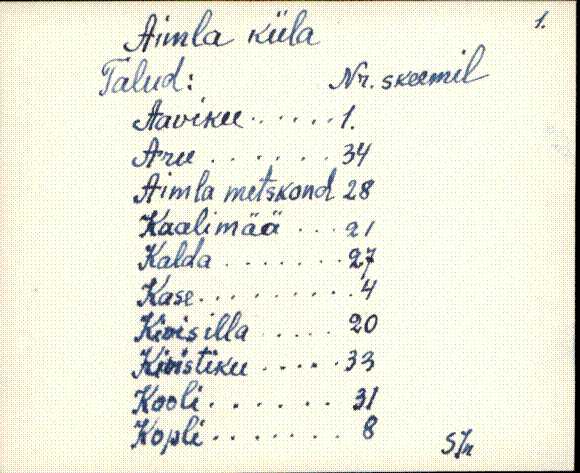 1.
Aimla küla
Talud: Nr. skeemil
Aaviku ...... 1.
Aru ....... 34
Aimla metskond 28
Kaalimää ... 21
Kalda ....... 27
Kase ......... 4
Kivisilla ..... 20
Kivistiku ..... 33
Kooli ....... 31
Kopli ....... 8